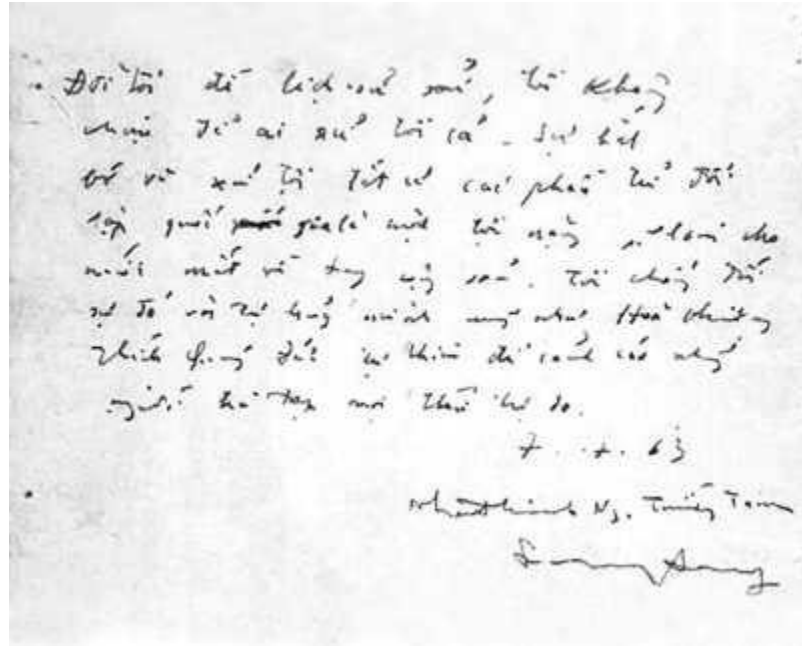 Đời tôi để lịch sử xử, tôi không
chịu để ai xử tôi cả. Sự bắt
bớ và xử tội tất cả các phần tử đối
lập quốc gia là một tội nặng, sẽ làm cho
nước mất về tay cộng sản. Tôi chống đối
sự đó và tự hủy mình cũng như Hoà thượng
Thích Quảng Đức tự thiêu để cảnh cáo những
người chà đạp mọi thứ tự do.
7. 7. 63
Nhất Linh Ng. Tường Tam